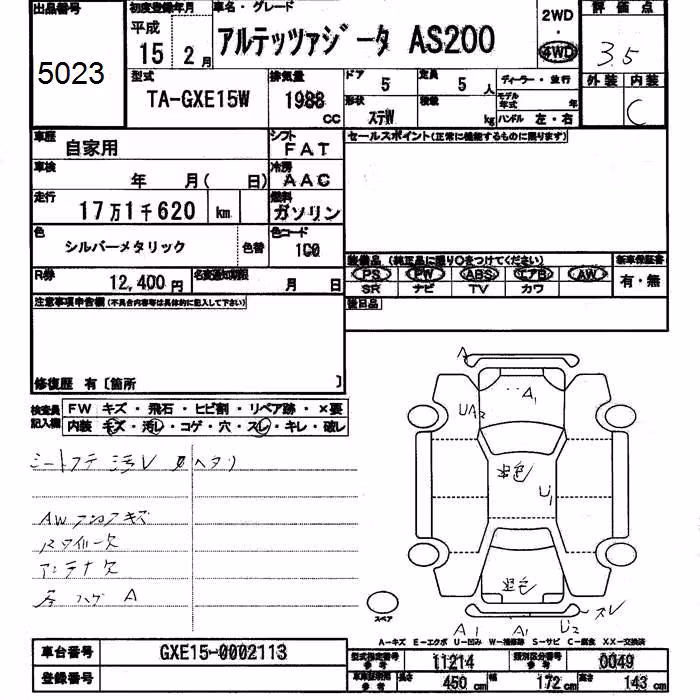 出品番号 初度登録年月 車名・グレード 評価点
5023 平成 15 2月 アルテッツァジータ AS200 2WD・4WD 3.5
型式 排気量 ドア 定員 ディーラー・並行 外装 内装
TA-GXE15W 1988 CC 5 5人 モデル年式 年 C
形状 ステW 積載 kg ハンドル 左・右
車歴 自家用 シフト FAT セールスポイント(正常に機能するものに限ります)
車検 年 月( 日) 冷房 AAC
走行 17万1千620 km 燃料 ガソリン
色 シルバーメタリック 色替 色コード 1C0
装備品 (純正品に限り○をつけてください) 新車保証書
R券 12,400円 名変通知期限 月 日 PS PW ABS エアB AW 有・無
SR ナビ TV カワ
注意事項申告欄(不具合内容等は具体的に記入して下さい) 後日品
修復歴 有〔箇所 〕
検査員記入欄 FW キズ・飛石・ヒビ割・リペア跡・×要
内装 キズ・汚レ・コゲ・穴・スレ・キレ・破レ
ヘタリ
AW キズ
欠
アンテナ欠
A
A
A1
UA2
U1
スレ
A1 A1 U2
スペア
A-キズ E-エクボ U-凹み W-補修跡 S-サビ C-腐食 XX-交換済
車台番号 GXE15-0002113 型式指定番号 参考 11214 類別区分番号 参考 0049
登録番号 車車証明用 参考 長さ 450cm 幅 172cm 高さ 143cm